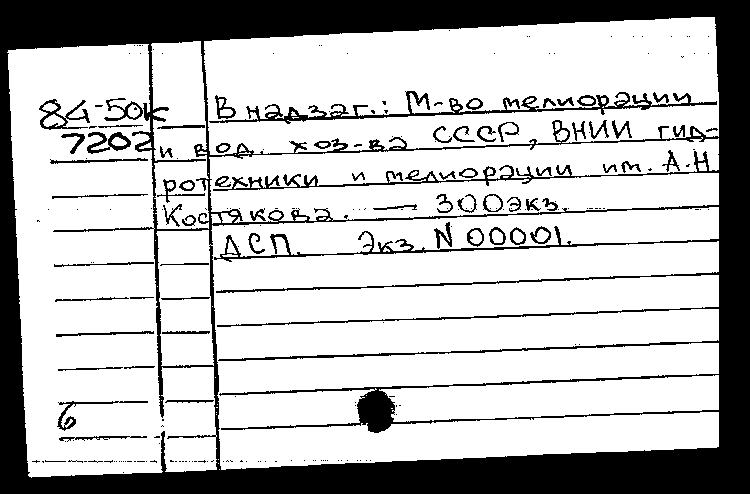 84-50к В надзаг.: М-во мелиорации
7202 и вод. хоз-ва СССР, ВНИИ гид-
ротехники и мелиорации им. А.Н.
Костякова. — 300экз.
ДСП. Экз. N 00001.
6